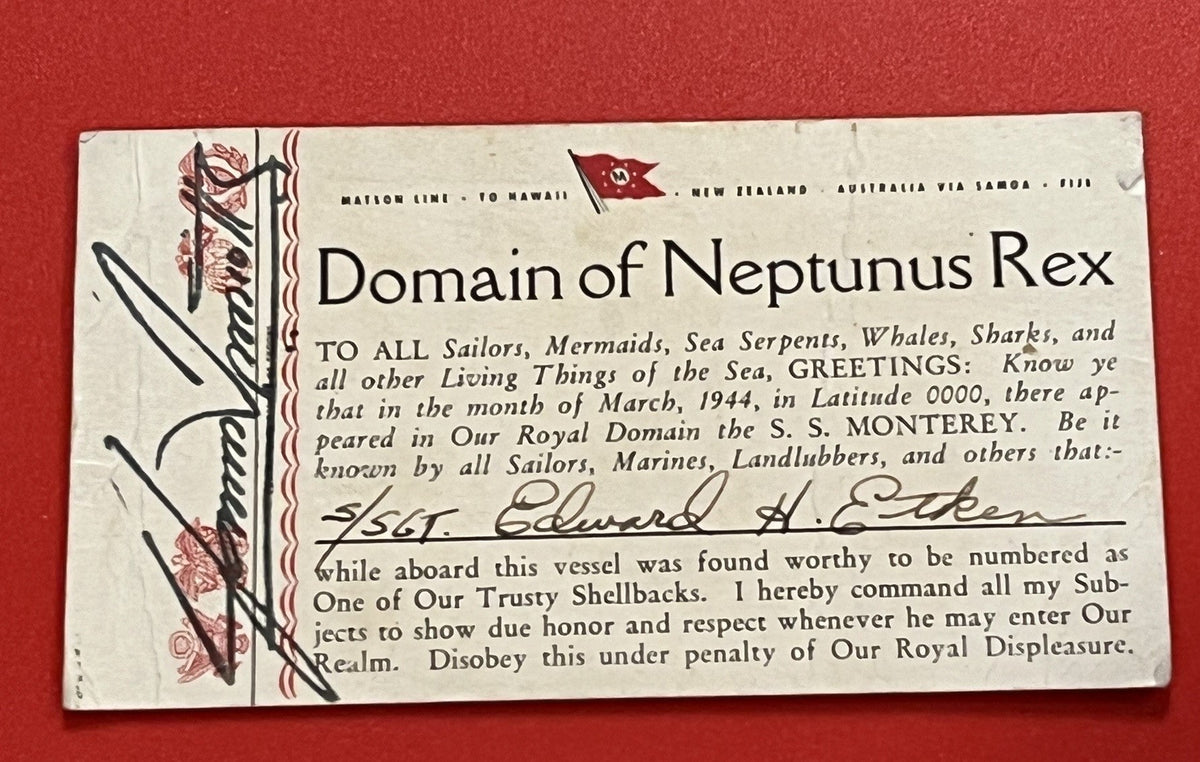 MATSON LINE · TO HAWAII M · NEW ZEALAND · AUSTRALIA VIA SAMOA · FIJI
Domain of Neptunus Rex
TO ALL Sailors, Mermaids, Sea Serpents, Whales, Sharks, and
all other Living Things of the Sea, GREETINGS: Know ye
that in the month of March, 1944, in Latitude 0000, there ap-
peared in Our Royal Domain the S. S. MONTEREY. Be it
known by all Sailors, Marines, Landlubbers, and others that:-
S/SGT. Edward H. Etken
while aboard this vessel was found worthy to be numbered as
One of Our Trusty Shellbacks. I hereby command all my Sub-
jects to show due honor and respect whenever he may enter Our
Realm. Disobey this under penalty of Our Royal Displeasure.